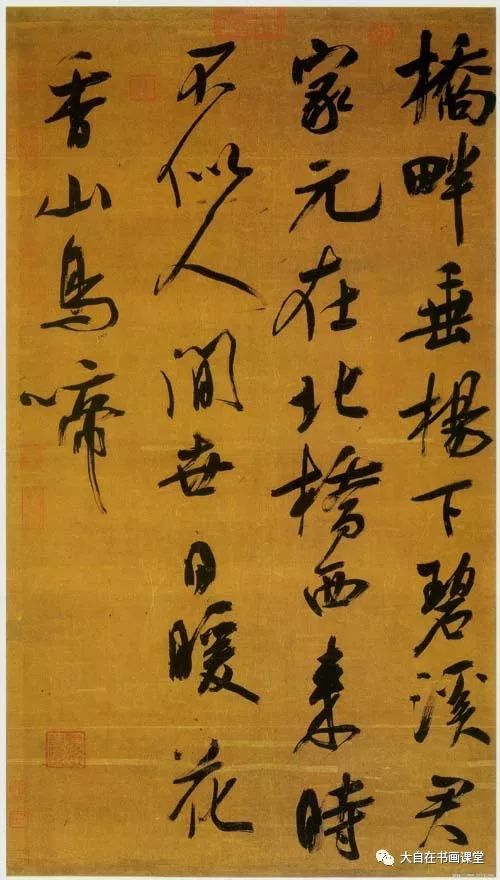 橋畔垂楊下碧溪君
家元在北橋西来時
不似人間世日暖花
香山鳥啼
大自在书画课堂